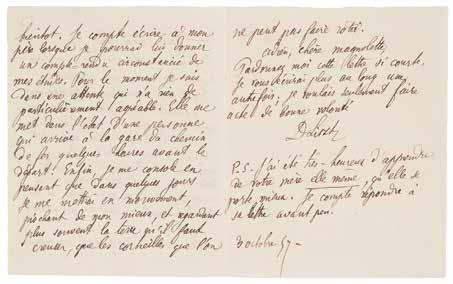 bientôt. Je compte écrire à mon
père lorsque je pourrai lui donner
un compte-rendu circonstancié de
mes études. Pour le moment je suis
dans une attente qui n'a rien de
particulièrement agréable. Elle me
met dans l'état d'une personne
qui arrive à la gare du chemin
de fer quelques heures avant le
départ! Enfin, je me console en
pensant que dans quelques jours
je me mettrai en mouvement,
piochant de mon mieux, et regardant
plus souvent la terre qu'il faut
creuser, que les corbeilles que l'on
ne peut pas faire rôtir.
chère magnolette,
Pardonnez moi cette lettre si courte.
Je vous écrirai plus au long une
autre fois, je voulais seulement faire
acte de bonne volonté
P.S. J'ai été très-heureux d'apprendre
de votre mère elle même, qu'elle se
porte mieux. Je compte répondre à
sa lettre avant peu.
3 octobre 57-